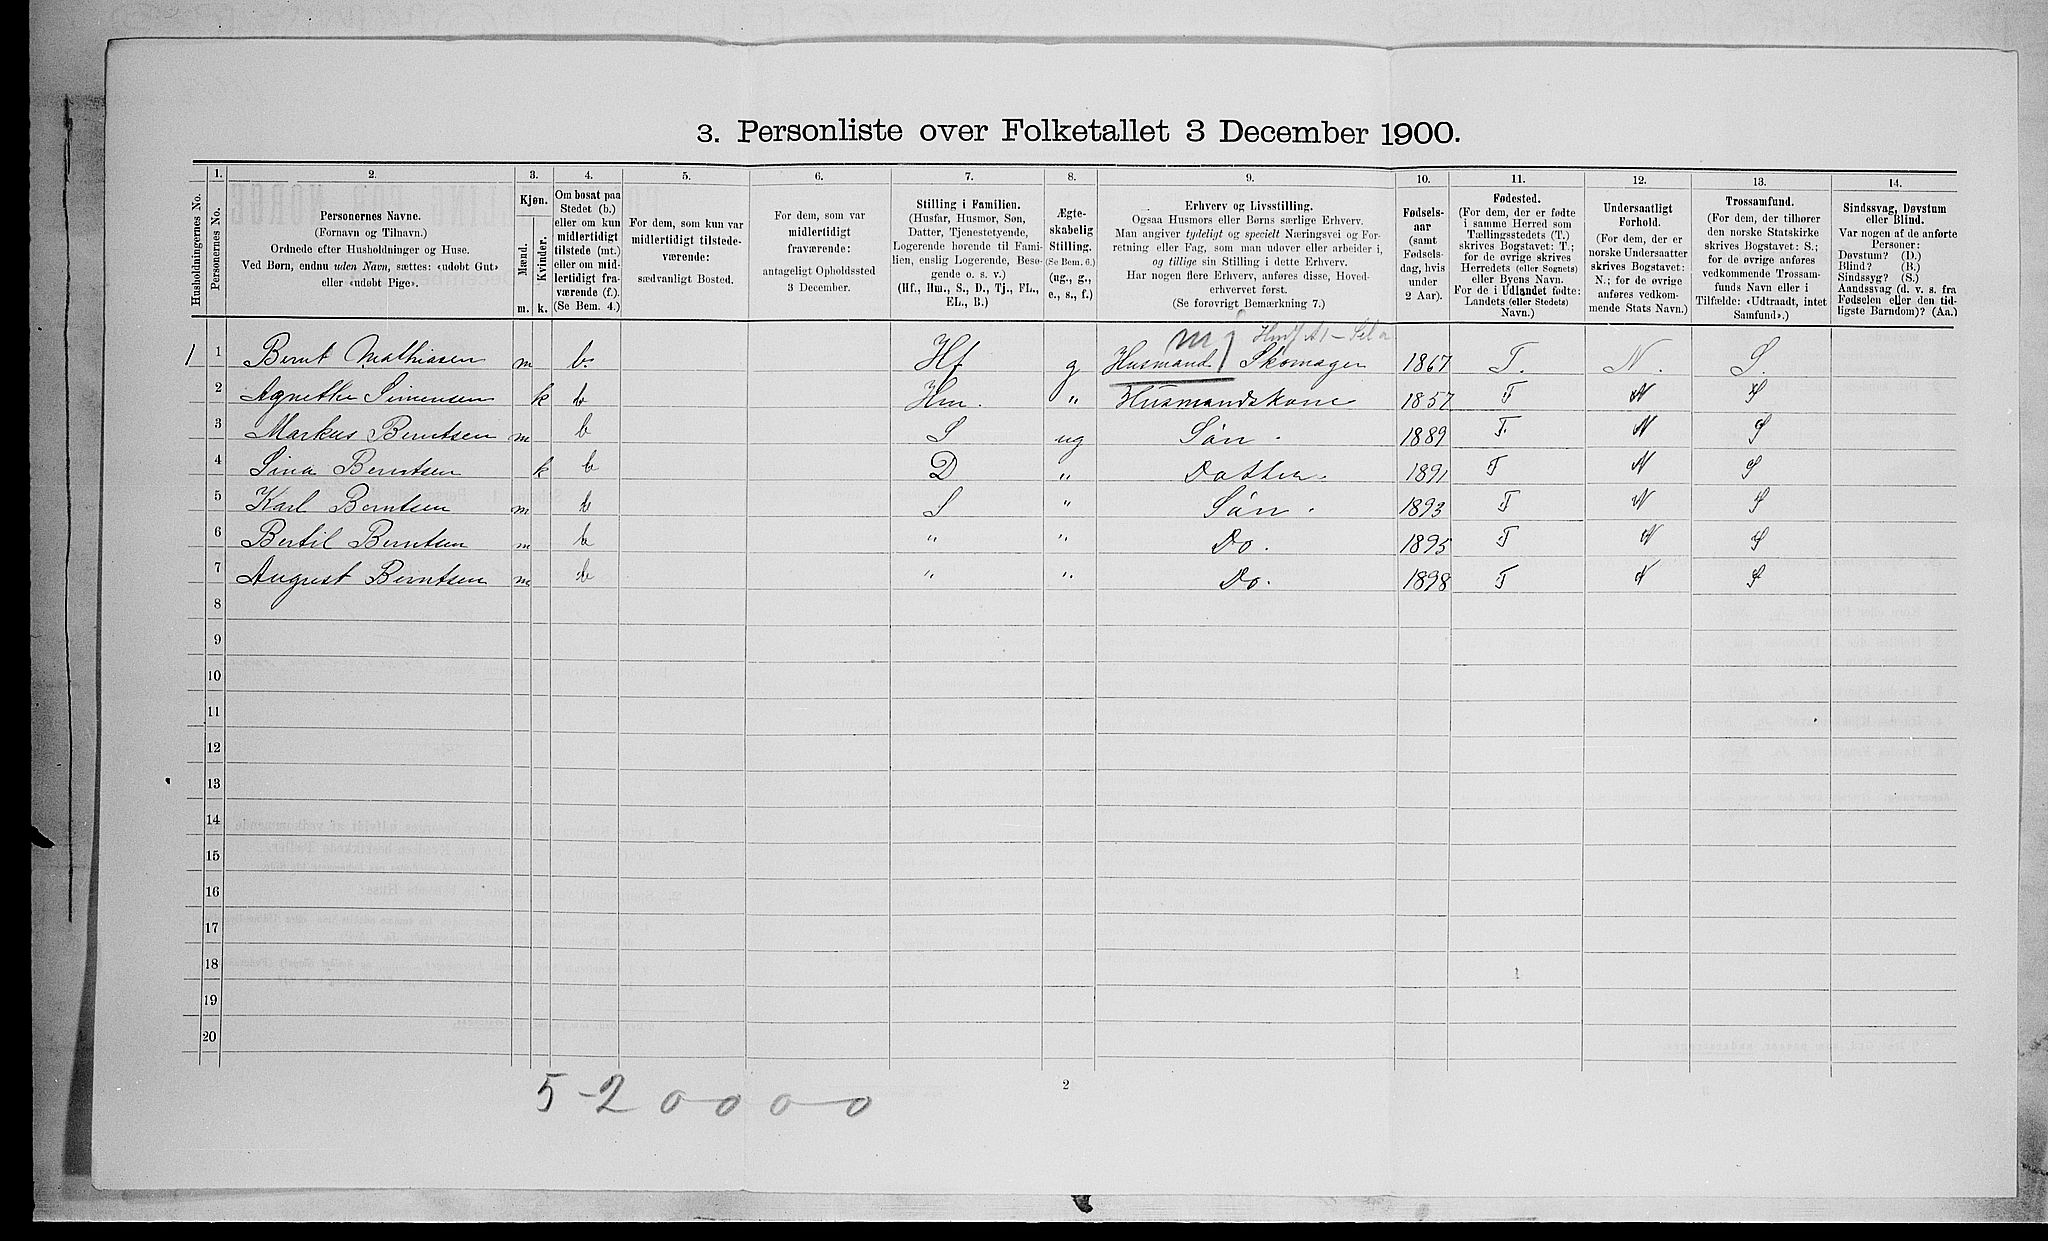 3. Personliste over Folketallet 3 December 1900.
1. 2. 3. 4. 5. 6. 7. 8. 9. 10. 11. 12. 13. 14.
Husholdningernes No.
Personernes No.
Personernes Navne.
(Fornavn og Tilnavn.)
Ordnede efter Husholdninger og Huse.
Ved Børn, endnu uden Navn, sættes: «udøbt Gut»
eller «udøbt Pige».
Kjøn.
Mænd.
Kvinder.
m. k.
Om bosat paa
Stedet (b.)
eller om kun
midlertidigt
tilstede (mt.)
eller om mid-
lertidigt fra-
værende (f.).
(Se Bem. 4.)
For dem, som kun var
midlertidigt tilstede-
værende:
sædvanligt Bosted.
For dem, som var
midlertidigt
fraværende:
antageligt Opholdssted
3 December.
Stilling i Familien.
(Husfar, Husmor, Søn,
Datter, Tjenestetyende,
Logerende hørende til Fami-
lien, enslig Logerende, Besø-
gende o. s. v.)
(Hf., Hm., S., D., Tj., FL.,
EL., B.)
Ægte-
skabelig
Stilling.
(Se Bem. 6.)
(ug., g.,
e., s., f.)
Erhverv og Livsstilling.
Ogsaa Husmors eller Børns særlige Erhverv.
Man angiver tydeligt og specielt Næringsvei og For-
retning eller Fag, som man udøver eller arbeider i,
og tillige sin Stilling i dette Erhverv.
Har nogen flere Erhverv, anføres disse, Hoved-
erhvervet først.
(Se forøvrigt Bemærkning 7.)
Fødsels-
aar
(samt
Fødsels-
dag, hvis
under
2 Aar).
Fødested.
(For dem, der er fødte
i samme Herred som
Tællingsstedets (T.)
skrives Bogstavet: T.;
for de øvrige skrives
Herredets (eller Sognets)
eller Byens Navn.
For de i Udlandet fødte:
Landets (eller Stedets)
Navn.)
Undersaatligt
Forhold.
(For dem, der er
norske Undersaatter
skrives Bogstavet:
N.; for de øvrige
anføres vedkom-
mende Stats Navn.)
Trossamfund.
(For dem, der tilhører
den norske Statskirke
skrives Bogstavet: S.;
for de øvrige anføres
vedkommende Trossam-
funds Navn eller i
Tilfælde: «Udtraadt, intet
Samfund».)
Sindssvag, Døvstum
eller Blind.
Var nogen af de anførte
Personer:
Døvstum? (D.)
Blind? (B.)
Sindssyg? (S.)
Aandssvag (d. v. s. fra
Fødselen eller den tid-
ligste Barndom)? (Aa.)
m
1 1 Bernt Mathiasen m b. Hf g Husmand Skomager 1867 T. N. S.
2 Agnethe Simensen k b Hm. " Husmandskone 1857 T N S
3 Markus Berntsen m b S ug Søn. 1889 T. N S
4 Sina Berntsen k b D " Datter. 1891 T N S
5 Karl Berntsen m b S " Søn. 1893 T N S
6 Bertil Berntsen m b " " Do. 1895 T N S
7 August Berntsen m b " " Do. 1898 T N S
8
9
10
11
12
13
14
15
16
17
18
19
20
5-2 0 0 0 0
2